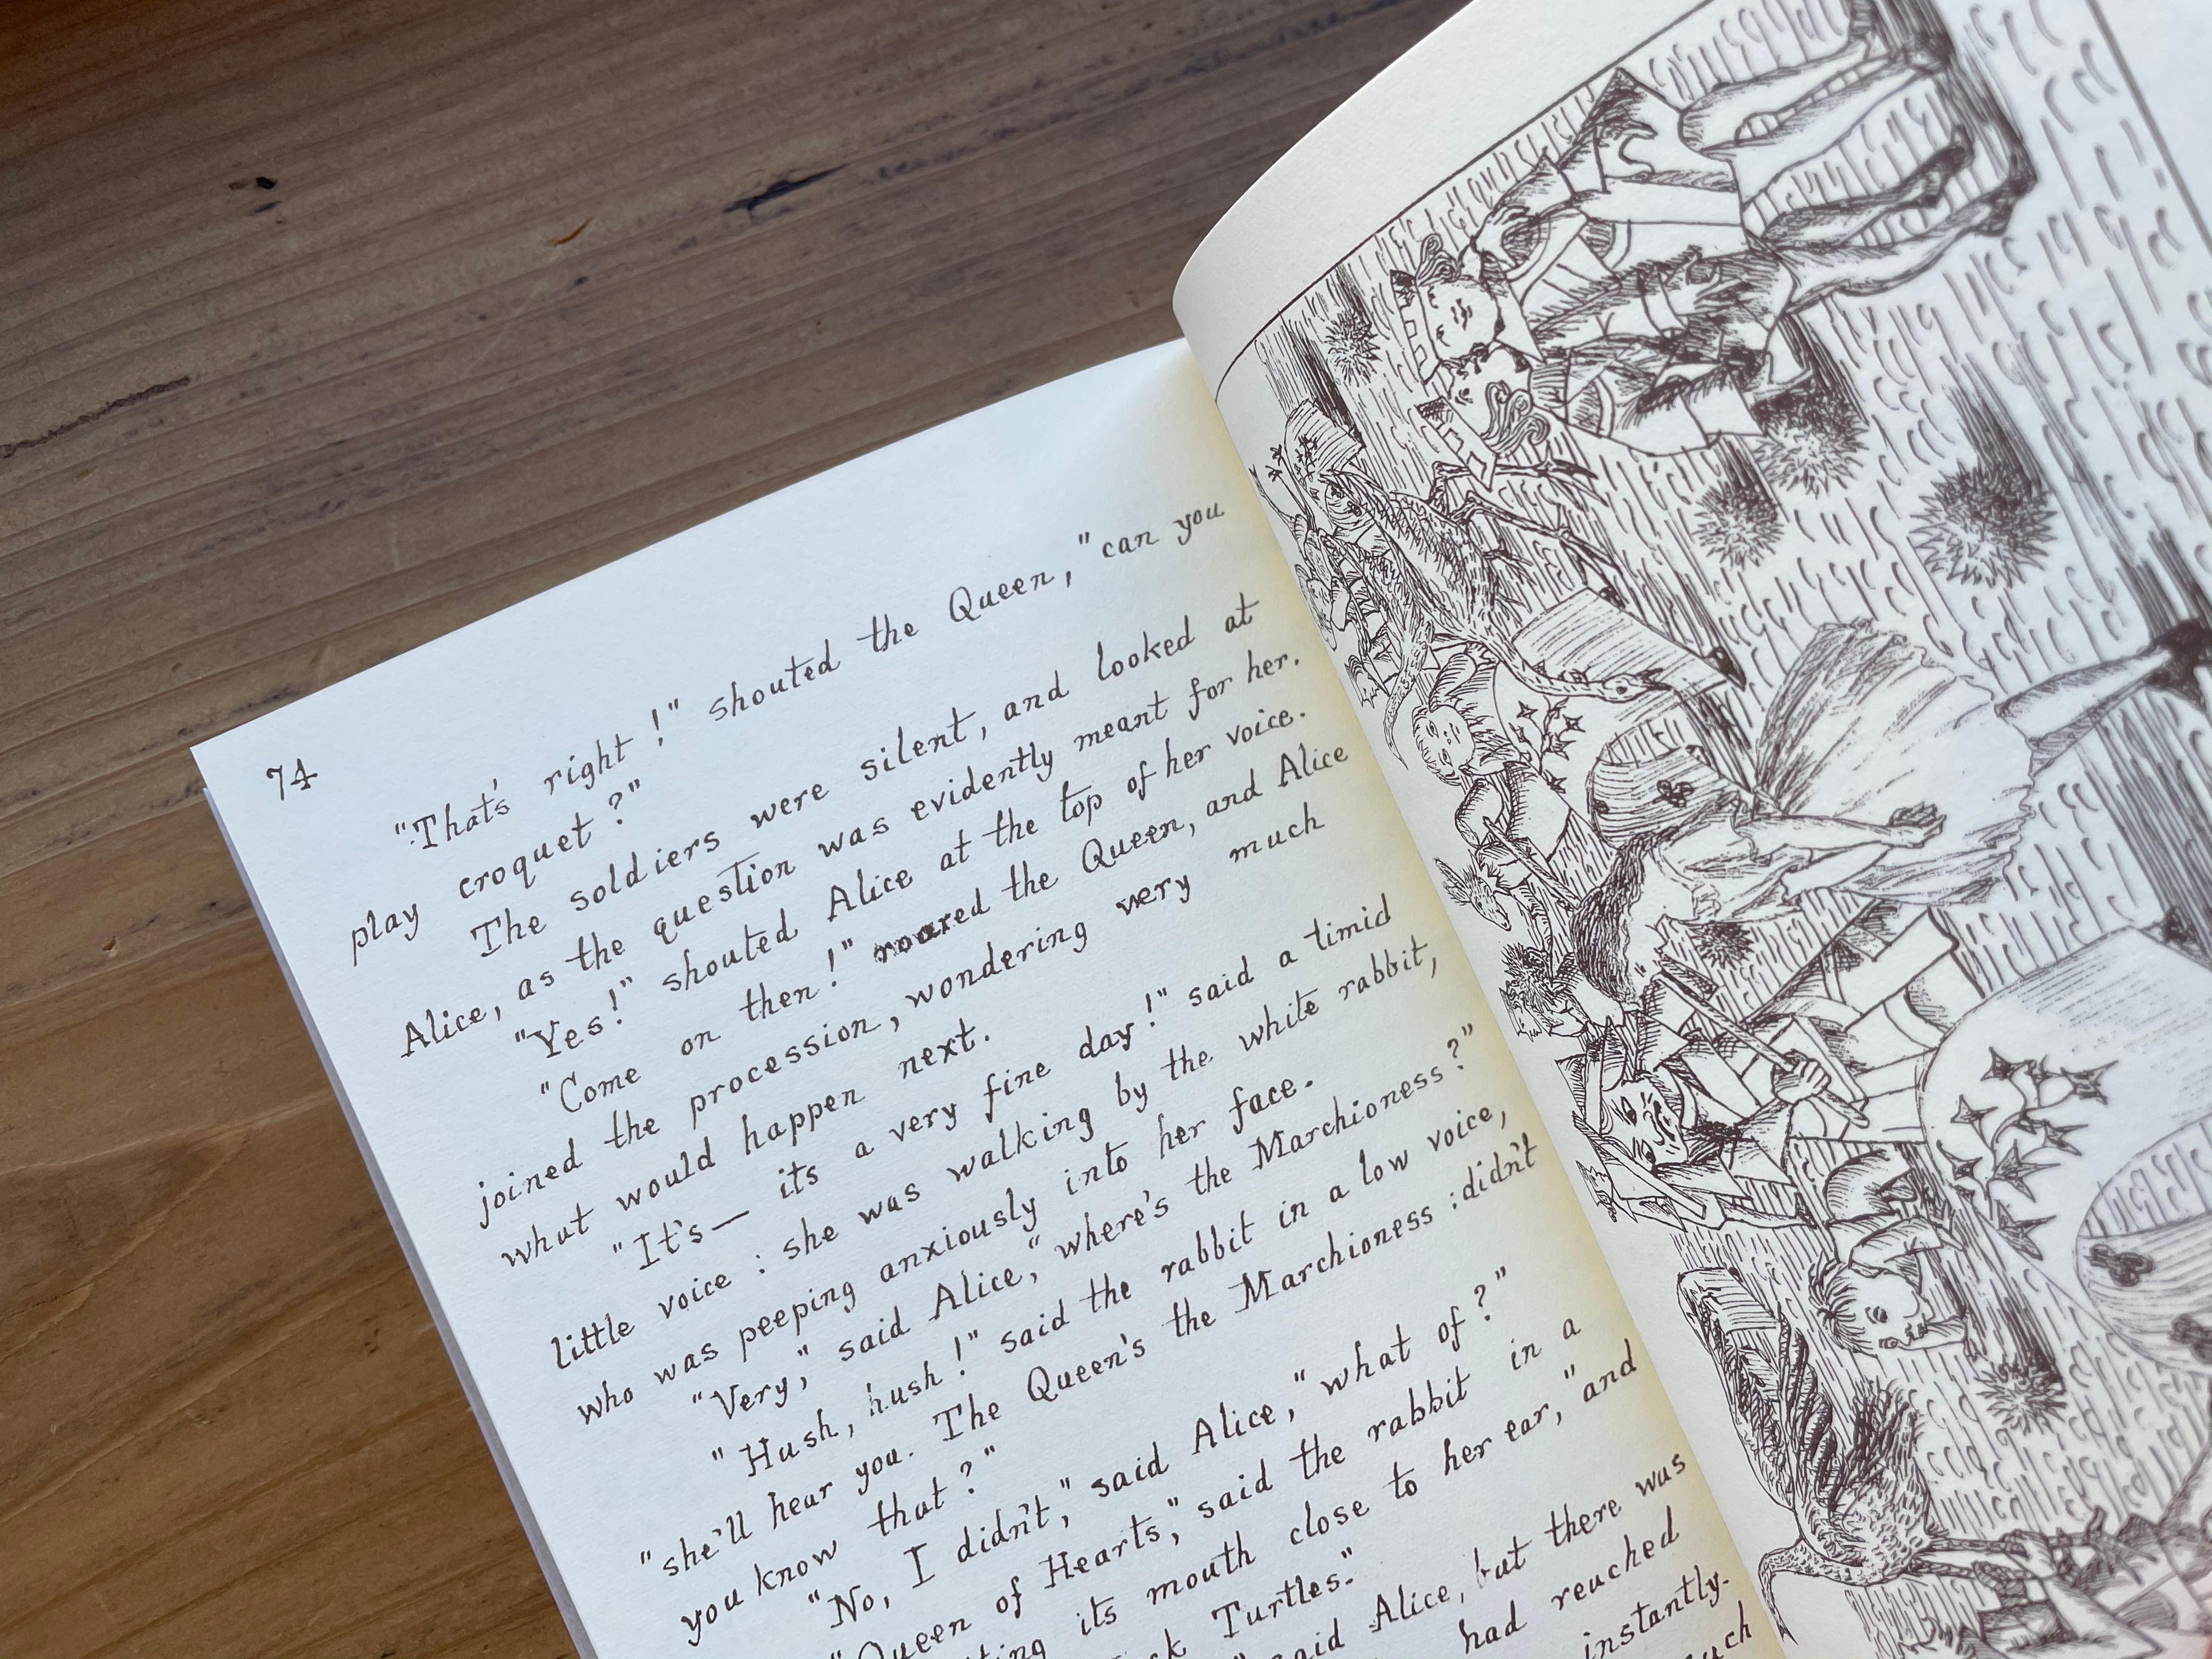 74
"That's right!" shouted the Queen, "can you
play croquet?"
The soldiers were silent, and looked at
Alice, as the question was evidently meant for her.
"Yes!" shouted Alice at the top of her voice.
"Come on then!" roared the Queen, and Alice
joined the procession, wondering very much
what would happen next.
"It's— its a very fine day!" said a timid
little voice: she was walking by the white rabbit,
who was peeping anxiously into her face.
"Very," said Alice, "where's the Marchioness?"
"Hush, hush!" said the rabbit in a low voice,
"she'll hear you. The Queen's the Marchioness: didn't
you know that?"
"No, I didn't," said Alice, "what of?"
"Queen of Hearts," said the rabbit in a
its mouth close to her ear, "and
Turtles."
said Alice, but there was
had reached
instantly.